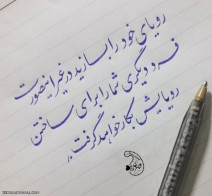 رویای خود را بسازید در غیر اینصورت
فرد دیگری شما را برای ساختن
رویایش بکار خواهد گرفت.